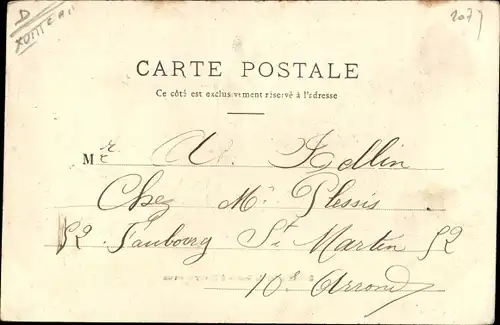 D
2077
CARTE POSTALE
Ce côté est exclusivement réservé à l'adresse
Mr A. Jollin
Chez Mr Plessis
52 Faubourg St Martin 52
10e Arrond